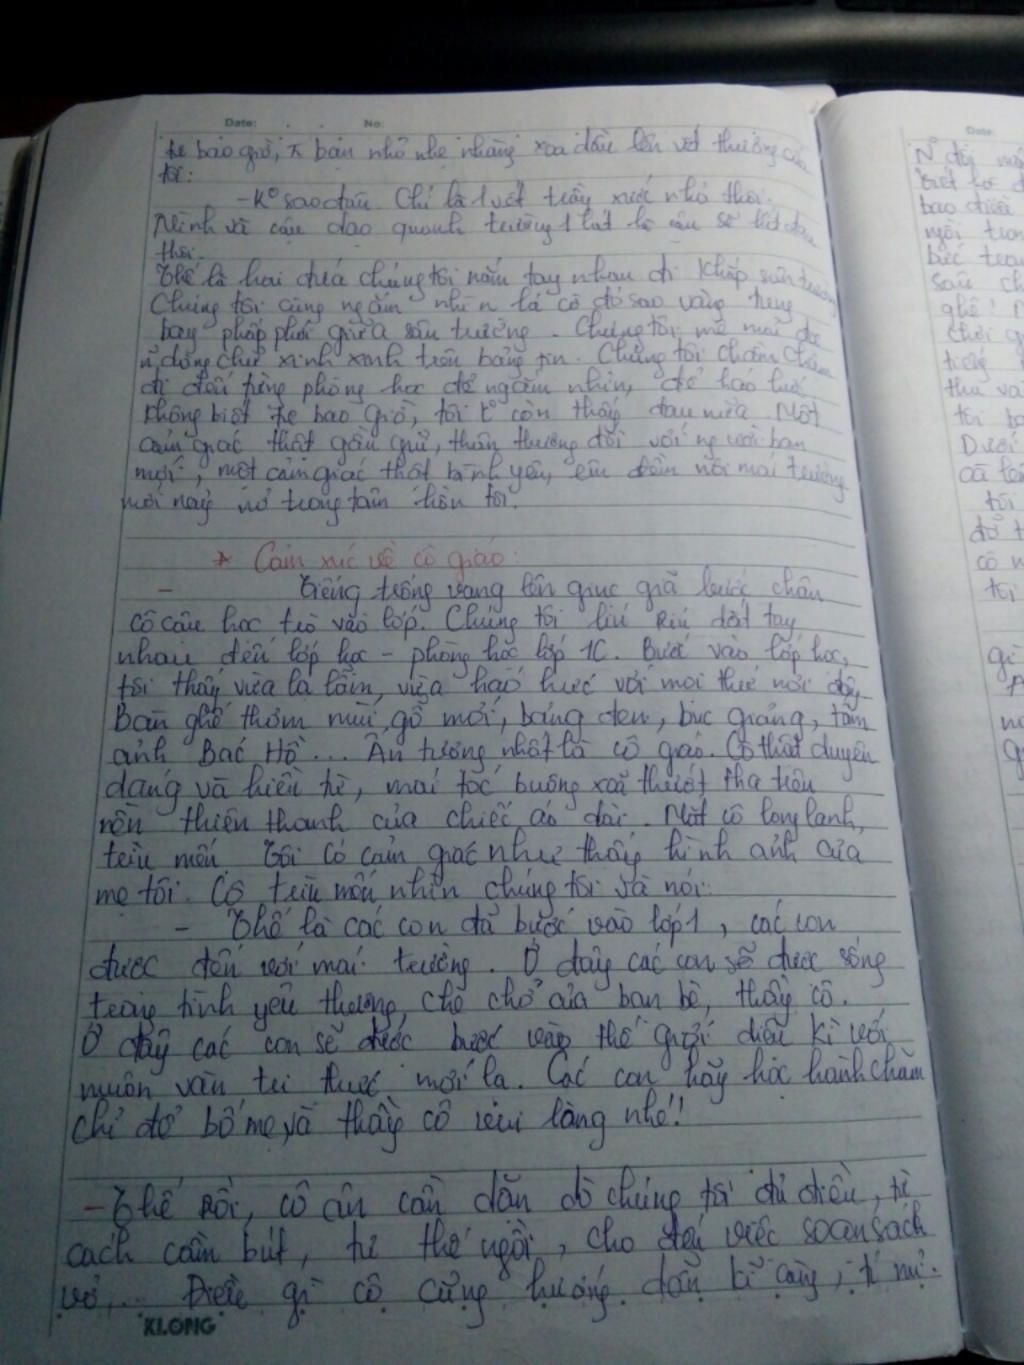 Date: . . No:
từ bao giờ, bạn nhỏ nhẹ nhàng xoa dầu lên vết thương của
tôi:
- K° sao đâu. Chỉ là 1 vết trầy xước nhỏ thôi.
Mình và cậu dạo quanh trường 1 lát là cậu sẽ hết đau
thôi.
Thế là hai đứa chúng tôi nắm tay nhau đi khắp sân trường
Chúng tôi cùng ngắm nhìn lá cờ đỏ sao vàng tung
bay phấp phới giữa sân trường. Chúng tôi mê mải đọc
dòng chữ xinh xinh trên bảng tin. Chúng tôi chầm chậm
đi đến từng phòng học để ngắm nhìn, để háo hức
không biết từ bao giờ, tôi k° còn thấy đau nữa. Một
cảm giác thật gần gũi, thân thương đối với người bạn
mới, một cảm giác thật bình yên, êm đềm nơi mái trường
mới nảy nở trong tâm hồn tôi.
* Cảm xúc về cô giáo:
- Tiếng trống vang lên giục giã bước chân
cô cậu học trò vào lớp. Chúng tôi líu ríu dắt tay
nhau đến lớp học - phòng học lớp 1C. Bước vào lớp học,
tôi thấy vừa lạ lẫm, vừa háo hức với mọi thứ nơi đây
Bàn ghế thơm mùi gỗ mới, bảng đen, bục giảng, tấm
ảnh Bác Hồ... Ấn tượng nhất là cô giáo. Cô thật duyên
dáng và hiền từ, mái tóc buông xoã thướt tha trên
nền thiên thanh của chiếc áo dài. Mắt cô long lanh,
trìu mến. Tôi có cảm giác như thấy hình ảnh của
mẹ tôi. Cô trìu mến nhìn chúng tôi và nói:
- Thế là các con đã bước vào lớp 1, các con
được đến với mái trường. Ở đây các con sẽ được sống
trong tình yêu thương, che chở của bạn bè, thầy cô.
Ở đây các con sẽ được bước vào thế giới diệu kì với
muôn vàn tri thức mới lạ. Các con hãy học hành chăm
chỉ để bố mẹ và thầy cô vui lòng nhé!!
- Thế rồi, cô ân cần dặn dò chúng tôi đủ điều, từ
cách cầm bút, tư thế ngồi, cho đến việc soạn sách
vở,... Điều gì cô cũng hướng dẫn kĩ càng, tỉ mỉ.
KLONG
Date:
bao điều
ngôi
tiếng
thu
Dưới
cả
tôi
cô
tôi